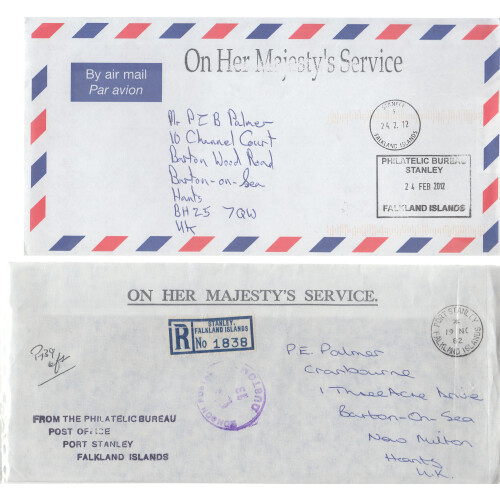 On Her Majesty's Service
By air mail
Par avion
Mr P E B Palmer
10 Channel Court
Barton Wood Road
Barton-on-Sea
Hants
BH25 7QW
UK
STANLEY
1
24.2.12
FALKLAND ISLANDS
PHILATELIC BUREAU
STANLEY
24 FEB 2012
FALKLAND ISLANDS
ON HER MAJESTY'S SERVICE.
R
STANLEY,
FALKLAND ISLANDS
No 1838
PORT STANLEY
FALKLAND ISLANDS
P.E. Palmer
Cranbourne
1 Three Acre Drive
Barton-On-Sea
New Milton
Hants
U.K.
FROM THE PHILATELIC BUREAU
POST OFFICE
PORT STANLEY
FALKLAND ISLANDS